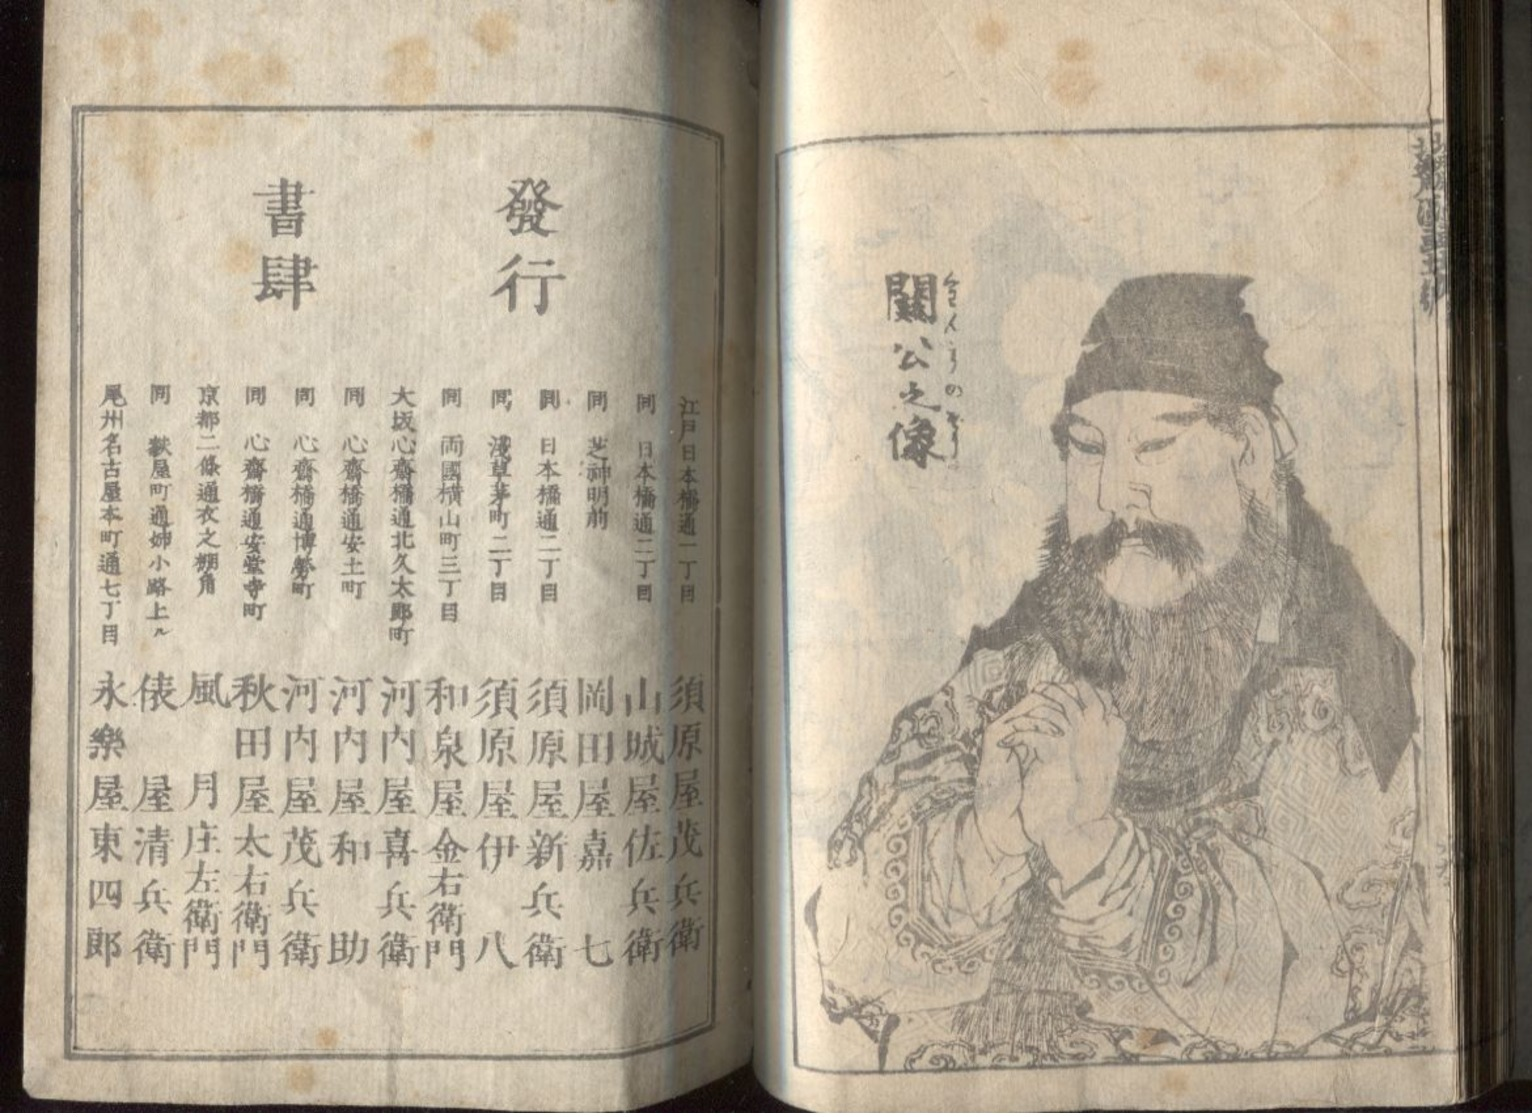 關公之像
發行
書肆
江戸日本橋通一丁目 須原屋茂兵衛
同 日本橋通二丁目 山城屋佐兵衛
同 芝神明前 岡田屋嘉七
同 日本橋通二丁目 須原屋新兵衛
同 淺草茅町二丁目 須原屋伊八
同 両國横山町三丁目 和泉屋金右衛門
大坂心齋橋通北久太郎町 河内屋喜兵衛
同 心齋橋通安土町 河内屋和助
同 心齋橋通博勞町 河内屋茂兵衛
同 心齋橋通安堂寺町 秋田屋太右衛門
京都二條通衣之棚角 風月庄左衛門
同 麩屋町通姉小路上ル 俵屋清兵衛
尾州名古屋本町通七丁目 永樂屋東四郎